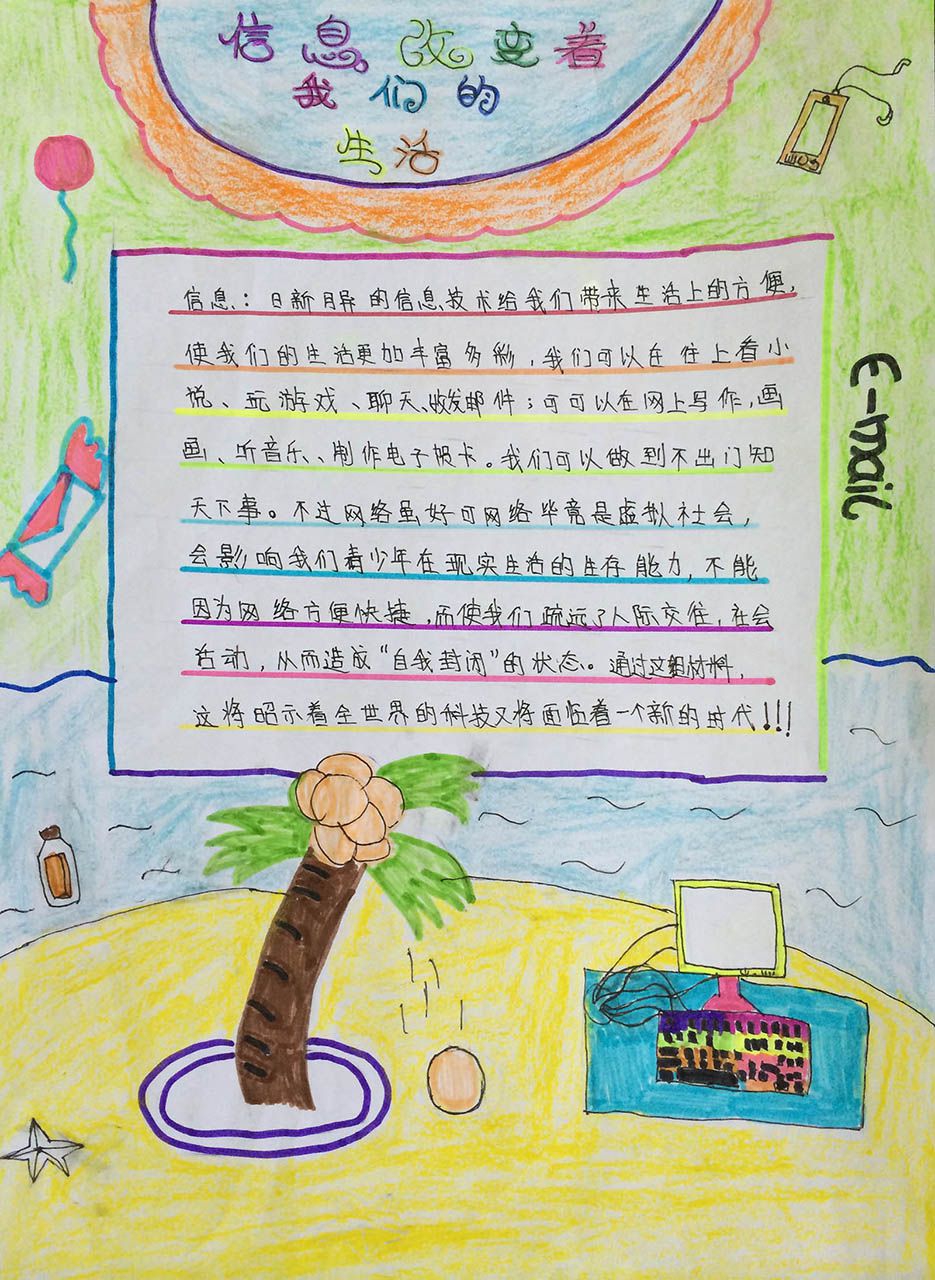 信息改变着
我们的
生活
信息：日新月异的信息技术给我们带来生活上的方便，
使我们的生活更加丰富多彩，我们可以在住上看小
说、玩游戏、聊天、收发邮件；可可以在网上写作，画
画、听音乐、制作电子贺卡。我们可以做到不出门知
天下事。不过网络虽好可网络毕竟是虚拟社会，
会影响我们青少年在现实生活的生存能力，不能
因为网络方便快捷，而使我们疏远了人际交往，社会
活动，从而造成“自我封闭”的状态。通过这组材料，
这将昭示着全世界的科技又将面临着一个新的时代!!!
E-mail